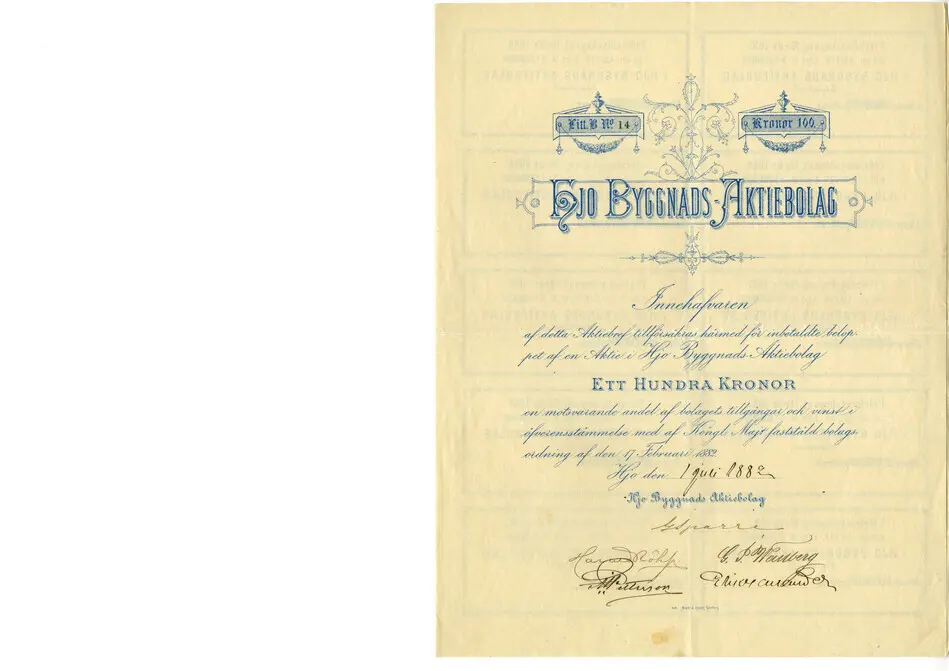 Litt. B No 14
Kronor 100.
HJO BYGGNADS-AKTIEBOLAG
Innehafvaren
af detta Aktiebref tillförsäkras härmed för inbetaldte belop-
pet af en Aktie i Hjo Byggnads-Aktiebolag
ETT HUNDRA KRONOR
en motsvarande andel af bolagets tillgångar och vinst i
öfverensstämmelse med af Kongl. Maj:t faststäld bolags-
ordning af den 17 Februari 1882.
Hjo den 1 juli 1882
Hjo Byggnads Aktiebolag
G Sparre